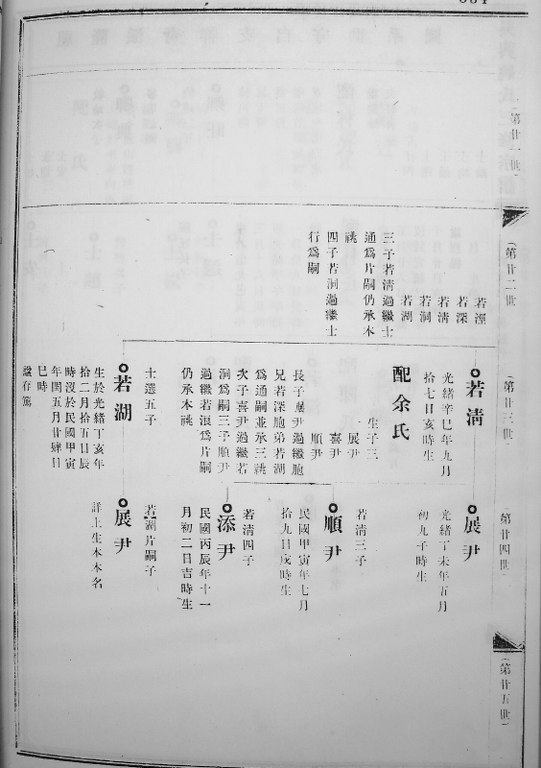 (第廿一世)
(第廿二世)
若深
若清
若洞
若湖
三子若清過繼士
通爲片嗣仍承本
祧
四子若洞過繼士
行爲嗣
(第廿三世)
若清
光緒辛巳年九月
拾七日亥時生
配余氏
生子三
展尹
喜尹
順尹
長子展尹過繼胞
兄若深胞弟若湖
爲通嗣並承三祧
次子喜尹過繼若
洞爲嗣三子順尹
過繼若浪爲片嗣
仍承本祧
士選五子
若湖
生於光緒丁亥年
拾二月拾五日辰
時沒於民國甲寅
年閏五月廿肆日
巳時
第廿四世
展尹
光緒丁未年五月
初九子時生
若清三子
順尹
民國甲寅年七月
拾九日戌時生
若清四子
添尹
民國丙辰年十一
月初二日吉時生
若湖片嗣子
展尹
詳上生本本名
(第廿五世)